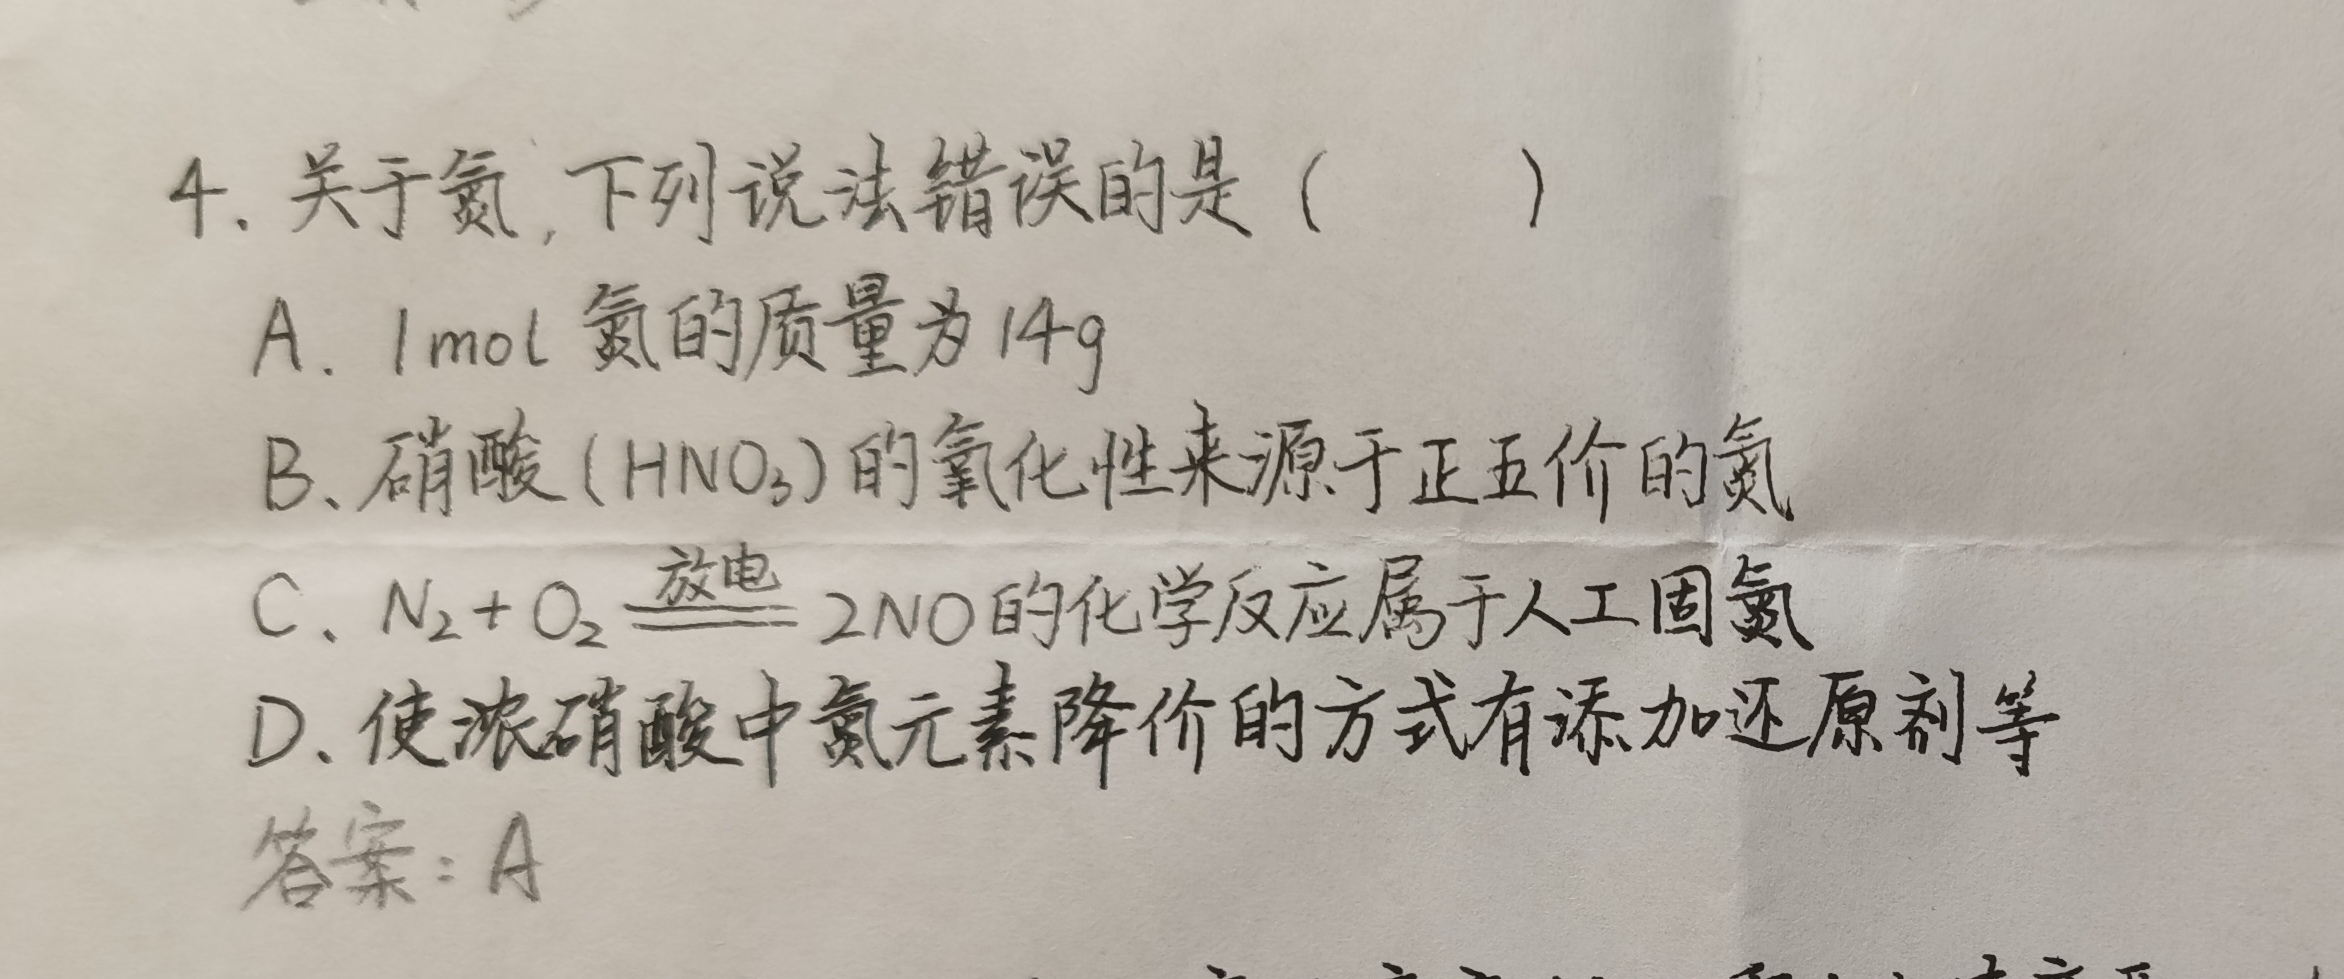 4. 关于氮,下列说法错误的是 (      )
A. 1mol 氮的质量为14g
B、硝酸(HNO₃)的氧化性来源于正五价的氮
C、N₂+O₂ 放电═══ 2NO的化学反应属于人工固氮
D、使浓硝酸中氮元素降价的方式有添加还原剂等
答案:A